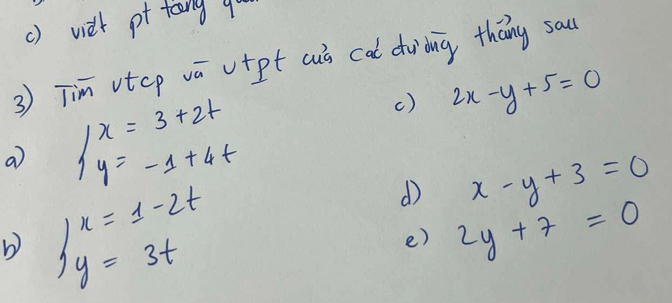 c) viết pt tổng
3) Tìm vtcp và vtpt của các đường thẳng sau
a) { x = 3 + 2t
y = -1 + 4t
b) { x = 1 - 2t
y = 3t
c) 2x - y + 5 = 0
d) x - y + 3 = 0
e) 2y + 7 = 0